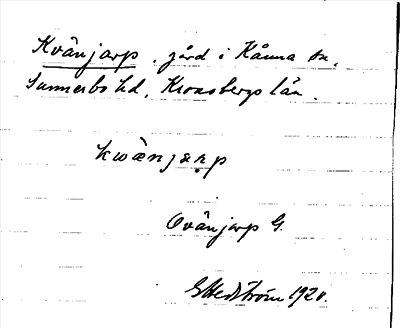 Kvänjarp, gård i Kånna sn,
Sunnerbo hd, Kronobergs län.
kwànjarp
Qvänjarp G.
G Hedström 1920.